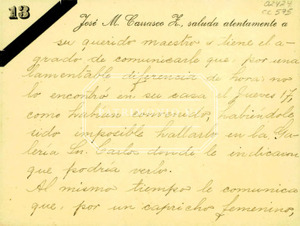 02424
cc 595
13
José M. Carrasco Z., saluda atentamente a
su querido maestro y tiene el a-
grado de comunicarle que, por una
lamentable diferencia de hora no
lo encontró en su casa el Jueves 17,
como habían convenido, habiéndole
sido imposible hallarlo en la Ga-
lería Sn. Carlos donde le indicaron
que podría verlo.
Al mismo tiempo le comunica
que, por un capricho femenino,